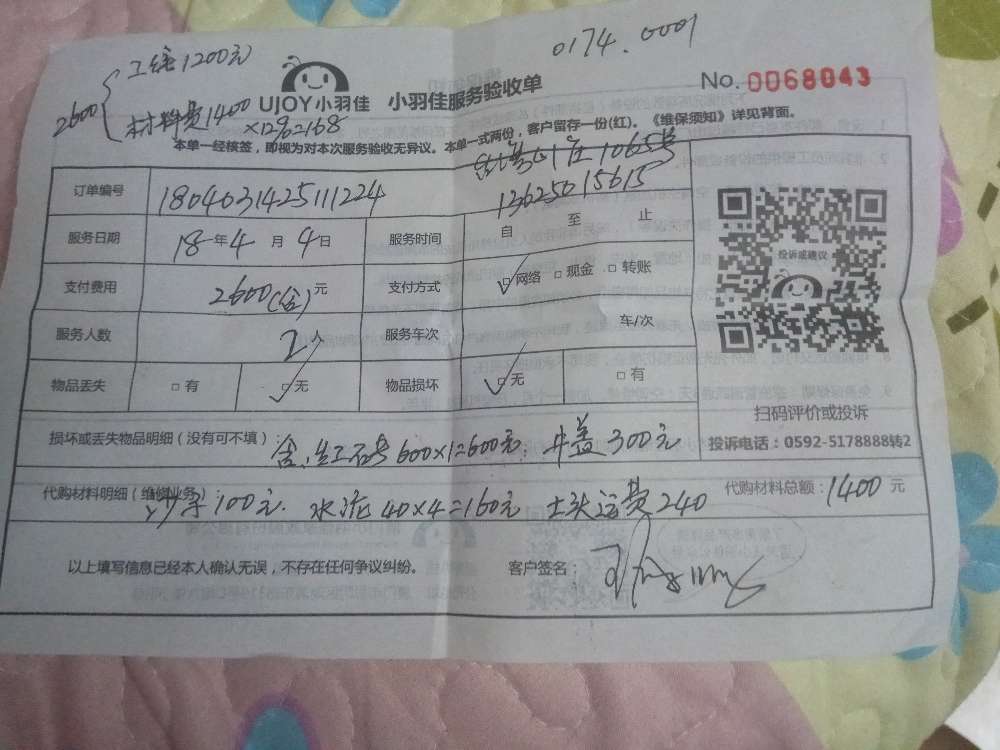 工钱1200元
0174.0001
2600
材料费1400
×12%=168
UJOY小羽佳 小羽佳服务验收单
No. 0068043
本单一经核签,即视为对本次服务验收无异议。本单一式两份,客户留存一份(红)。《维保须知》详见背面。
1065号
13625015615
订单编号 18040314251111224
服务日期 18年4月4日 服务时间 自 至 止
支付费用 2600(含)元 支付方式 网络 现金 转账
服务人数 2人 服务车次 车/次
物品丢失 有 无 物品损坏 无 有
投诉或建议
扫码评价或投诉
投诉电话:0592-5178888转2
损坏或丢失物品明细(没有可不填): 600×1=600元; 井盖300元
代购材料明细(维修业务): 沙子100元. 水泥40×4=160元 土头运费240
代购材料总额:1400元
以上填写信息已经本人确认无误,不存在任何争议纠纷。
客户签名: